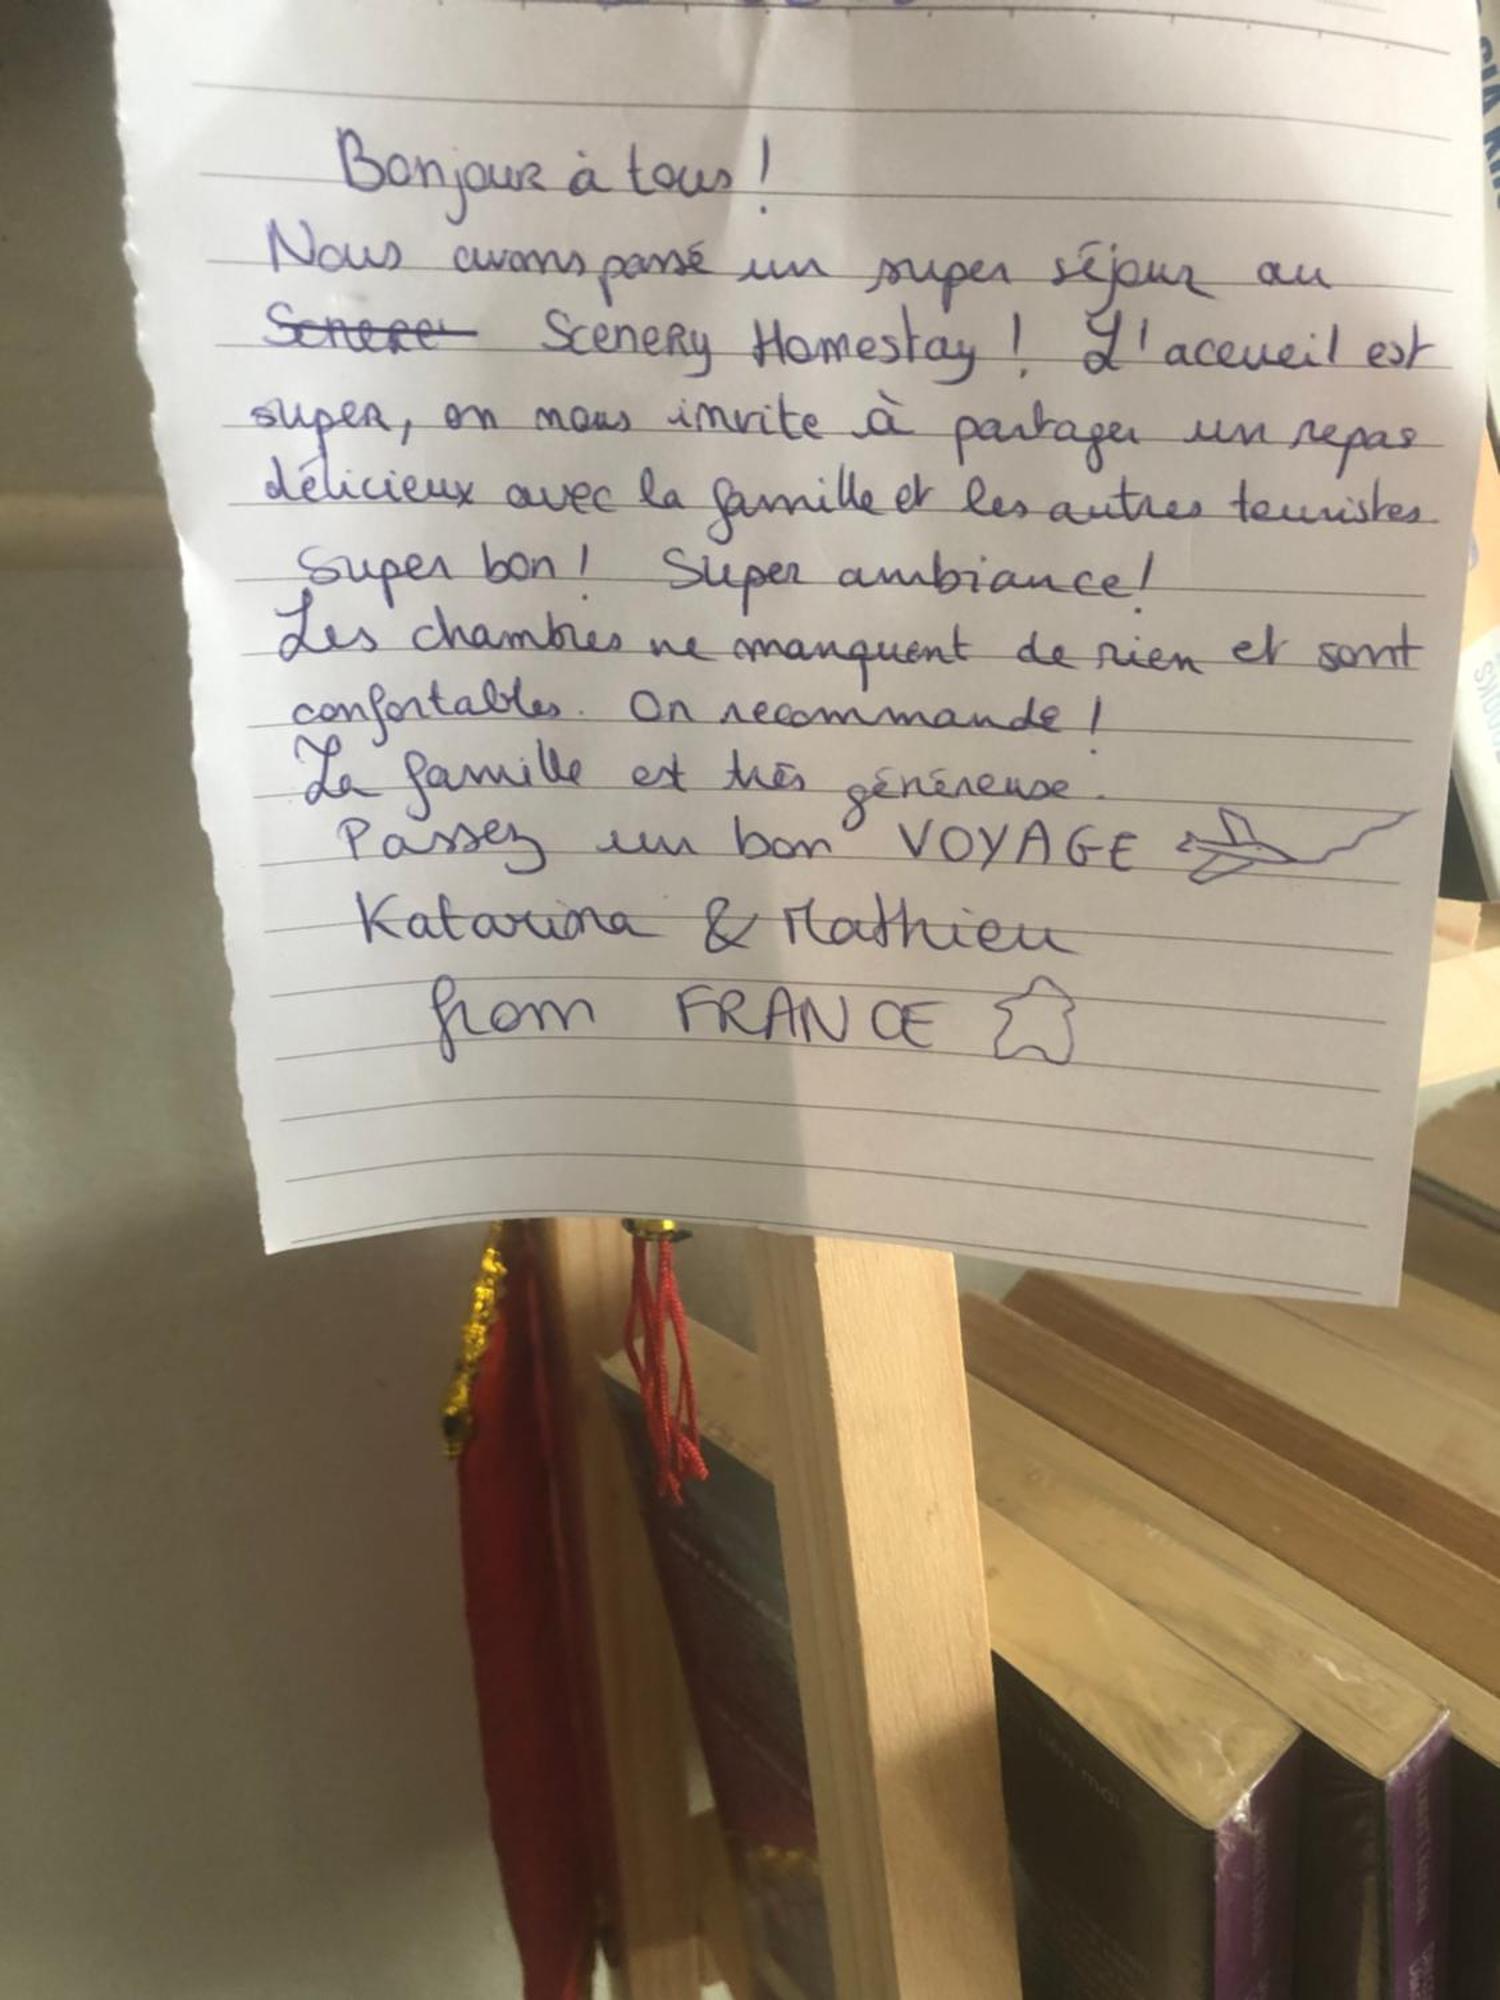 Bonjour à tous !
Nous avons passé un super séjour au
Scenery Homestay ! L'accueil est
super, on nous invite à partager un repas
délicieux avec la famille et les autres touristes.
Super bon ! Super ambiance !
Les chambres ne manquent de rien et sont
confortables. On recommande !
La famille est très généreuse.
Passez un bon VOYAGE
Katarina & Mathieu
from FRANCE